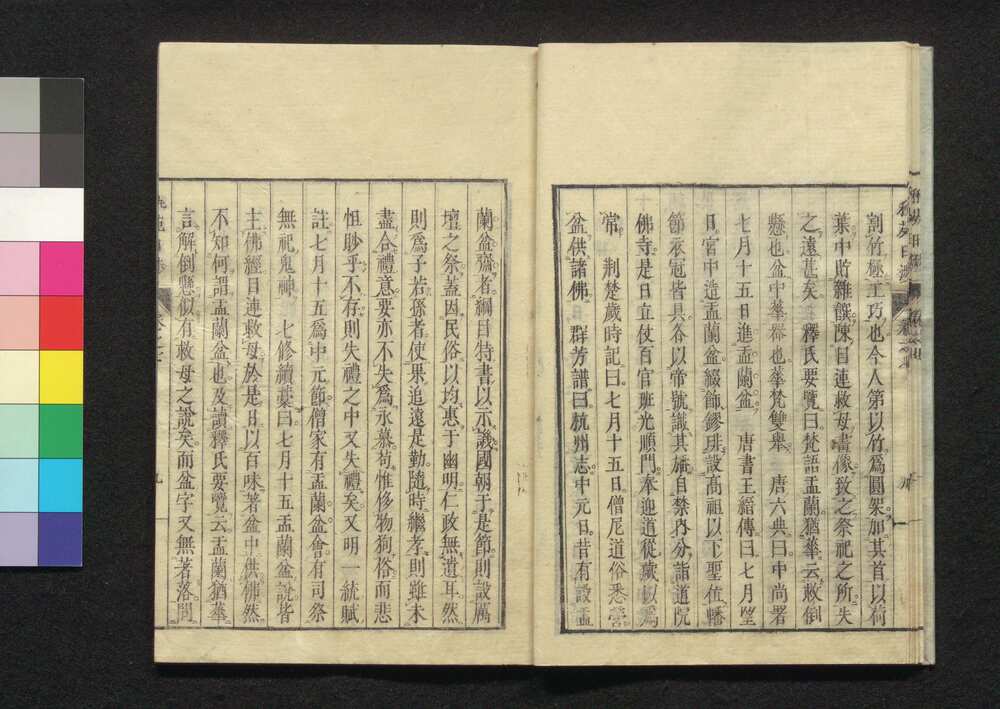 割竹極工巧也今人第以竹爲圓架加其首以荷
葉中貯雜饌陳目連救母畫像致之祭祀之所失
之遠甚矣 釋氏要覽曰梵語盂蘭猶華云救倒
懸也盆中華器也華梵雙舉 唐六典曰中尚署
七月十五日進盂蘭盆 唐書王縉傳曰七月望
日宮中造盂蘭盆綴飾鏐琲設高祖以下聖位幡
節衣冠皆具各以帝號識其旛自禁內分詣道院
佛寺是日立仗百官班光順門奉迎道從歲以爲
常 荆楚歲時記曰七月十五日僧尼道俗悉營
盆供諸佛 群芳譜曰杭州志中元日昔有設盂
蘭盆齋者綱目特書以示譏國朝于是節則設厲
壇之祭蓋因民俗以均惠于幽明仁政無遺耳然
則爲子若孫者使果追遠是勤隨時繼孝則雖未
盡合禮意要亦不失爲永慕苟惟侈物狥俗而悲
怛眇乎不存則失禮之中又失禮矣又明一統賦
註七月十五爲中元節僧家有盂蘭盆會有司祭
無祀鬼神 七修續藁曰七月十五盂蘭盆說皆
主佛經目連救母於是日以百味著盆中供佛然
不知何謂盂蘭盆也及讀釋氏要覽云盂蘭猶華
言解倒懸似有救母之說矣而盆字又無著落問
九